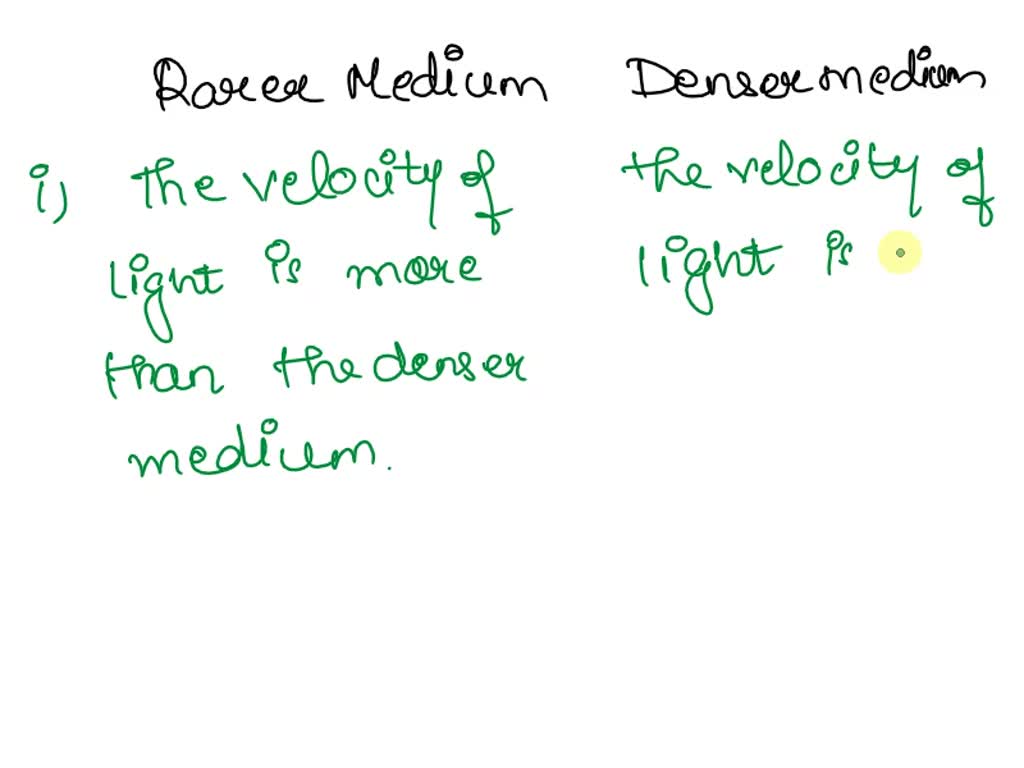 Rarer Medium
Denser medium
i) The velocity of
light is more
than the denser
medium.
the velocity of
light is